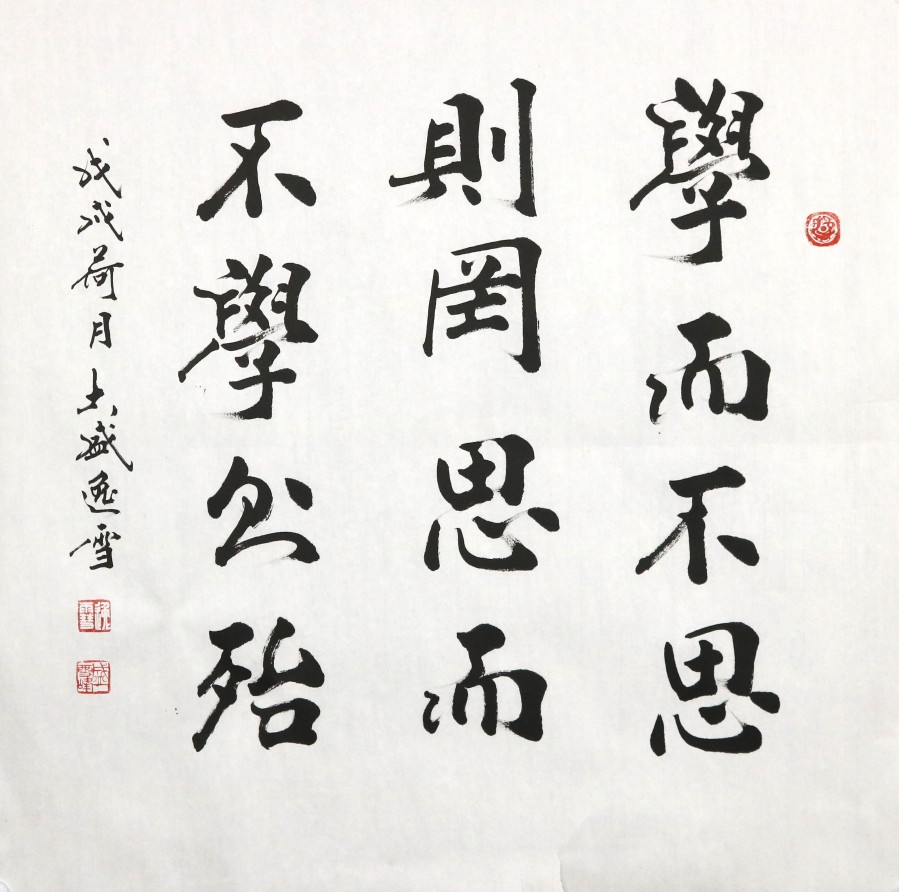 學而不思
則罔思而
不學則殆
戊戌荷月盛逸雪